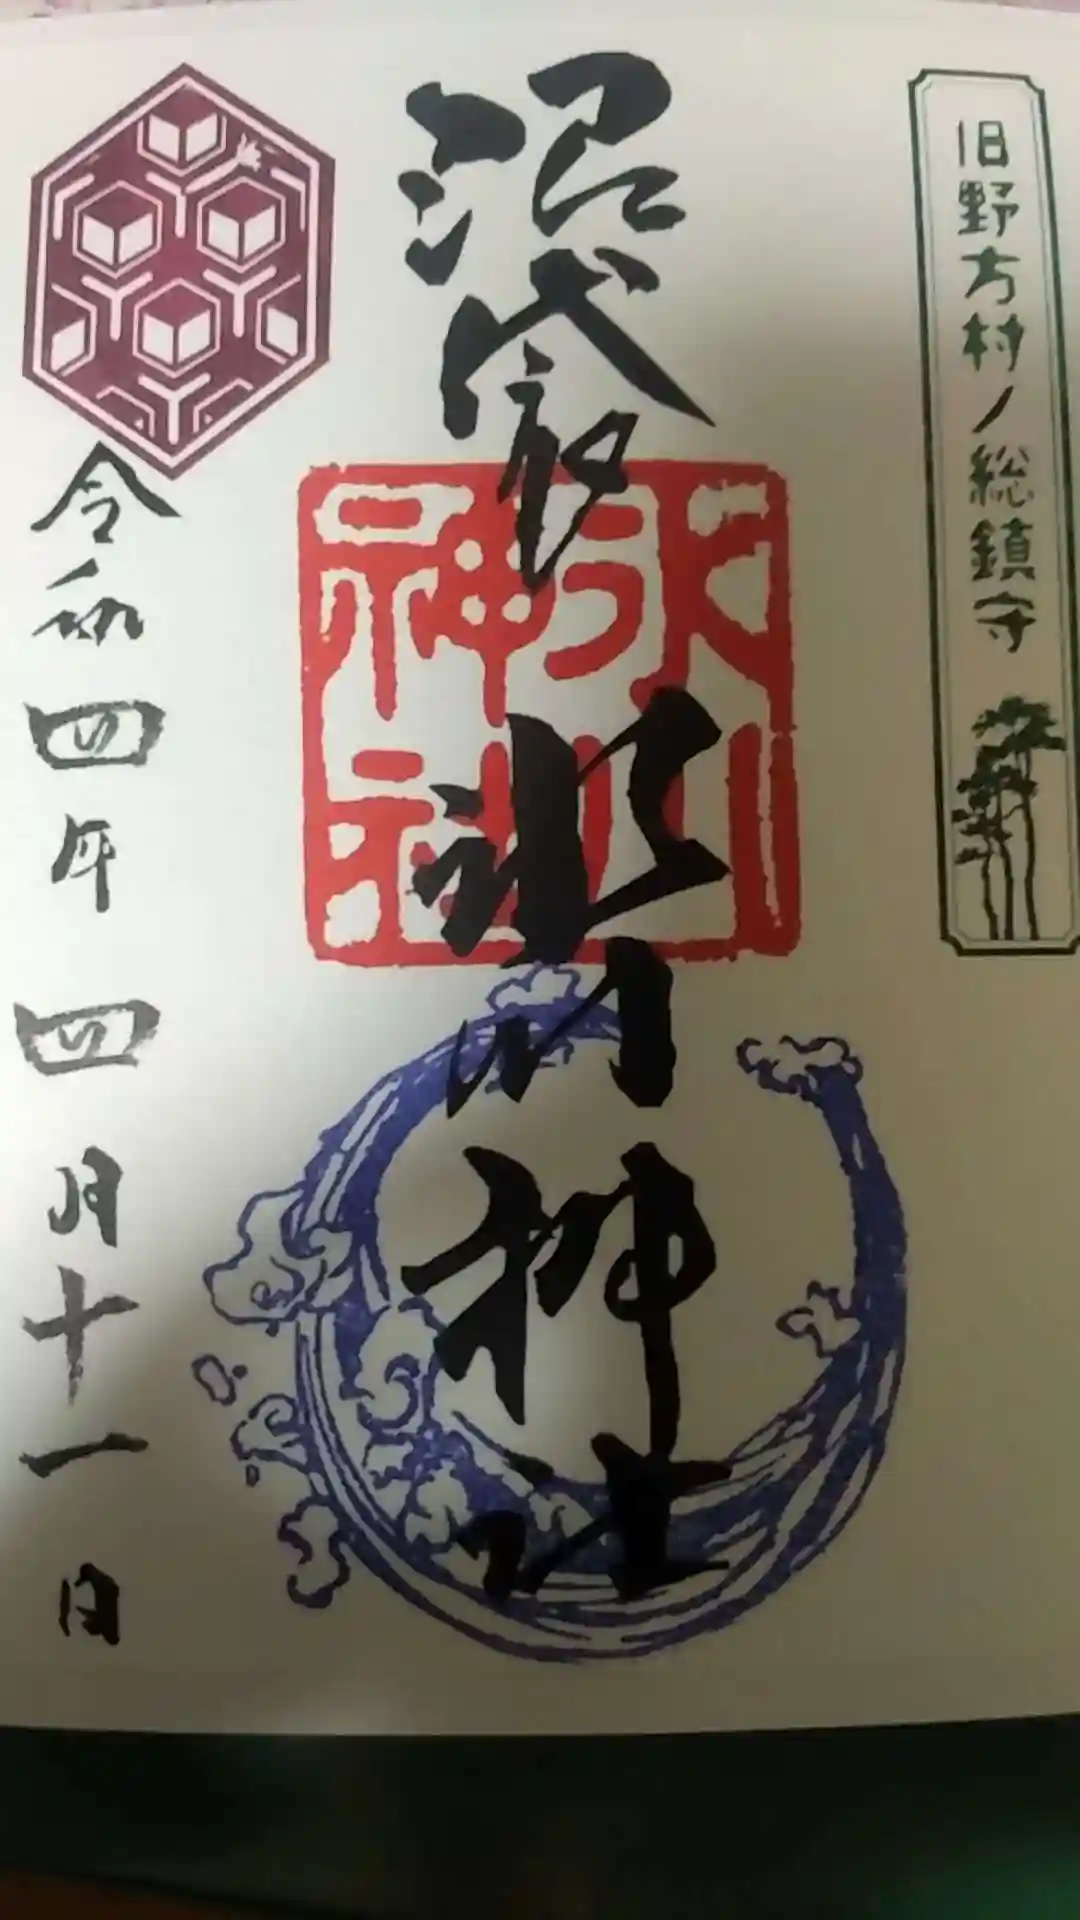 旧野方村ノ総鎮守
沼袋
氷川神社
氷川
神社
令和四年四月十一日